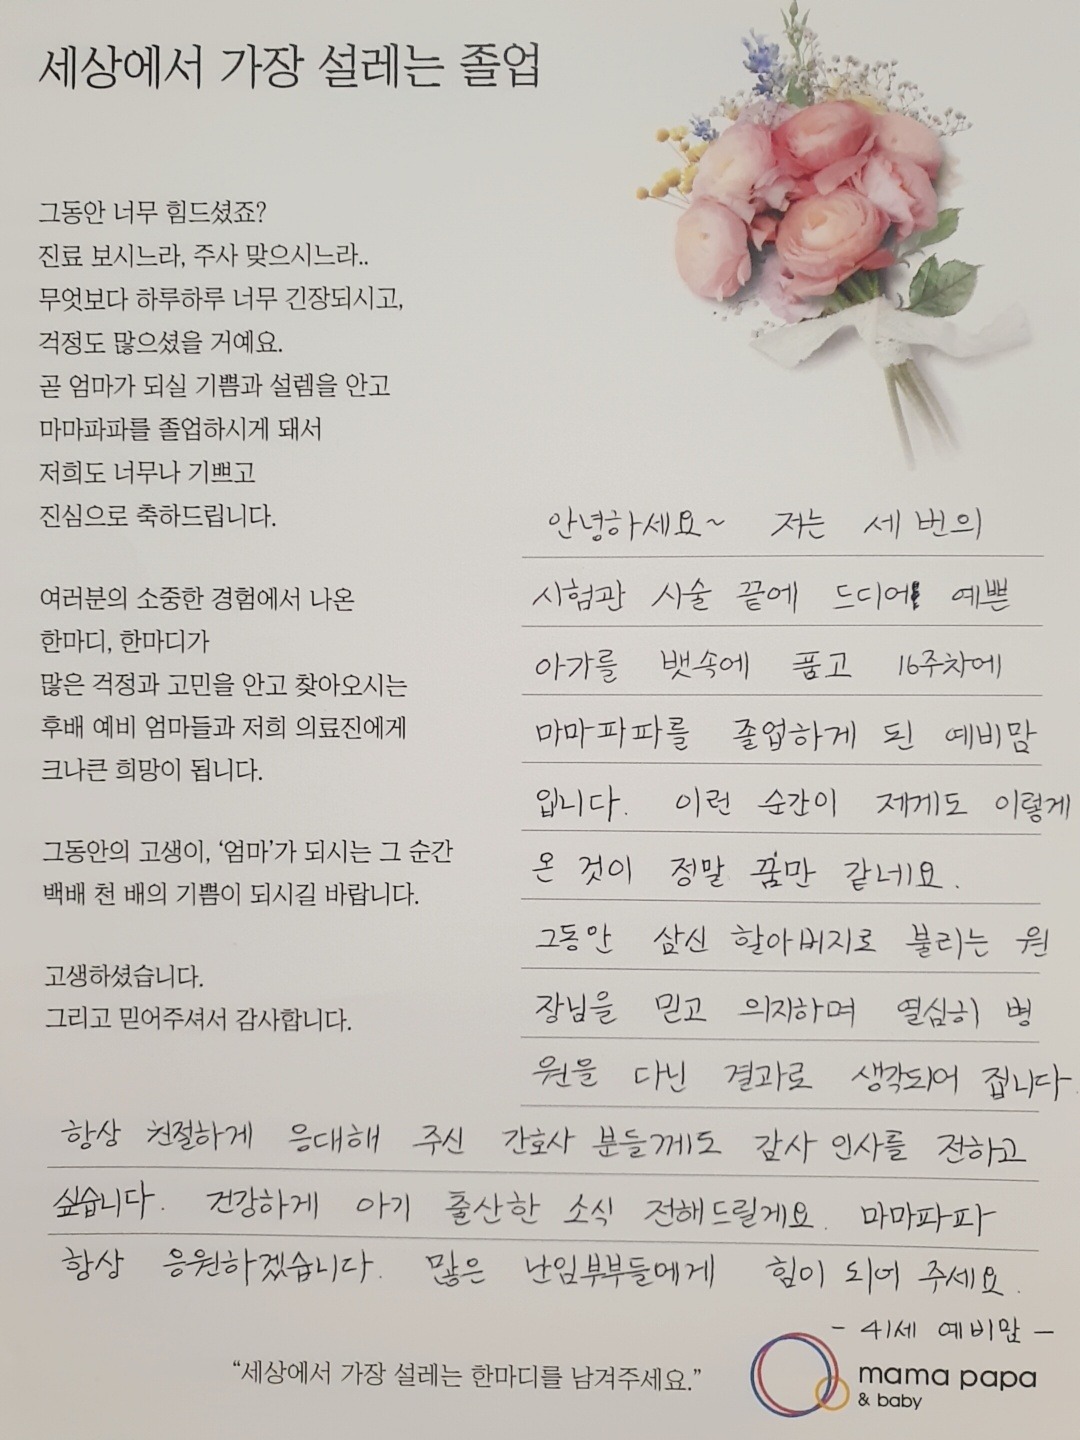 세상에서 가장 설레는 졸업
그동안 너무 힘드셨죠?
진료 보시느라, 주사 맞으시느라..
무엇보다 하루하루 너무 긴장되시고,
걱정도 많으셨을 거예요.
곧 엄마가 되실 기쁨과 설렘을 안고
마마파파를 졸업하시게 돼서
저희도 너무나 기쁘고
진심으로 축하드립니다.
여러분의 소중한 경험에서 나온
한마디, 한마디가
많은 걱정과 고민을 안고 찾아오시는
후배 예비 엄마들과 저희 의료진에게
크나큰 희망이 됩니다.
그동안의 고생이, ‘엄마’가 되시는 그 순간
백배 천 배의 기쁨이 되시길 바랍니다.
고생하셨습니다.
그리고 믿어주셔서 감사합니다.
안녕하세요~ 저는 세 번의
시험관 시술 끝에 드디어 예쁜
아가를 뱃속에 품고 16주차에
마마파파를 졸업하게 된 예비맘
입니다. 이런 순간이 제게도 이렇게
온 것이 정말 꿈만 같네요.
그동안 삼신 할아버지로 불리는 원
장님을 믿고 의지하며 열심히 병
원을 다닌 결과로 생각되어 집니다.
항상 친절하게 응대해 주신 간호사 분들께도 감사 인사를 전하고
싶습니다. 건강하게 아기 출산한 소식 전해드릴게요. 마마파파
항상 응원하겠습니다. 많은 난임부부들에게 힘이 되어 주세요.
- 41세 예비맘 -
“세상에서 가장 설레는 한마디를 남겨주세요.”
mama papa
& baby